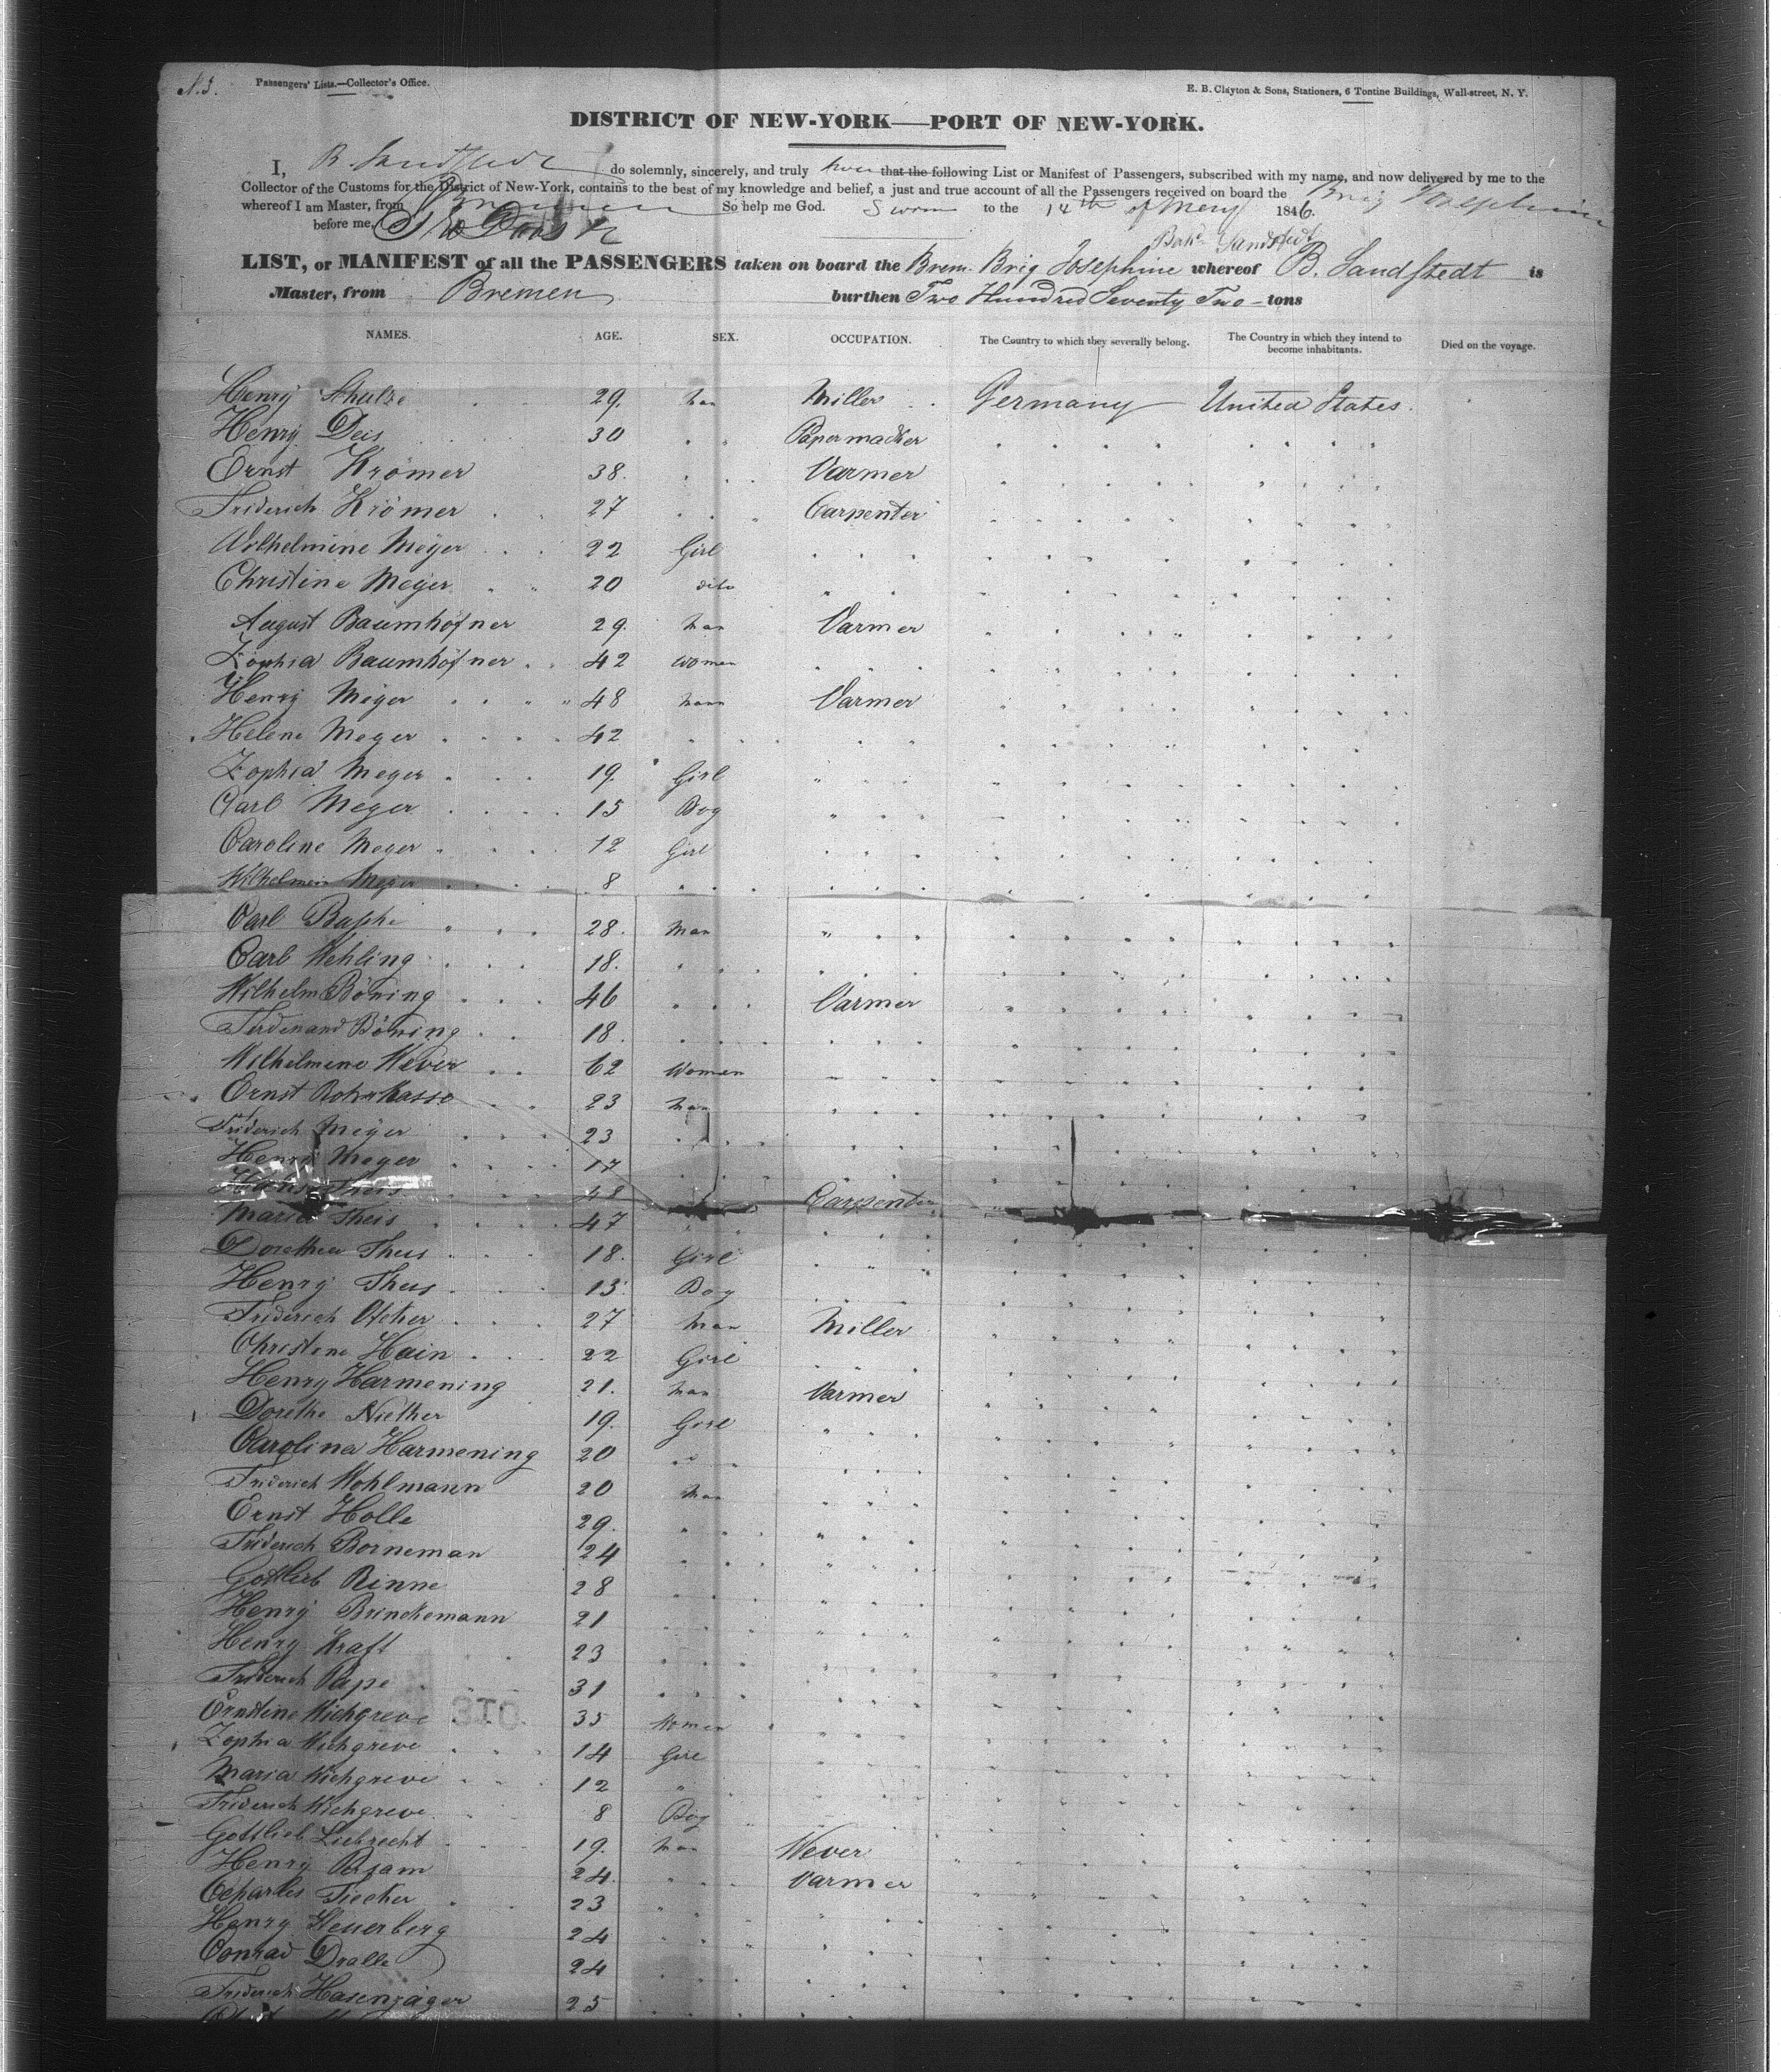 N. 3.
Passengers' Lists.—Collector's Office.
E. B. Clayton & Sons, Stationers, 6 Tontine Buildings, Wall-street, N. Y.
DISTRICT OF NEW-YORK—PORT OF NEW-YORK.
I, B. Sandstedt do solemnly, sincerely, and truly that the following List or Manifest of Passengers, subscribed with my name, and now delivered by me to the
Collector of the Customs for the District of New-York, contains to the best of my knowledge and belief, a just and true account of all the Passengers received on board the Brig Josephine
whereof I am Master, from Bremen So help me God. Sworn to the 14th of May 1846.
before me,
Sandstedt
LIST, or MANIFEST of all the PASSENGERS taken on board the Brem. Brig Josephine whereof B. Sandstedt is
Master, from Bremen burthen Two Hundred Seventy Two tons
NAMES. AGE. SEX. OCCUPATION. The Country to which they severally belong. The Country in which they intend to become inhabitants. Died on the voyage.
Henry Schulze 29. man Miller Germany United States.
Henry Deis 30 " Papermacker
Ernst Krömer 38. Varmer
Friderich Krömer 27 Carpenter
Wilhelmine Meÿer 22 Girl
Christine Meyer 20 dito
August Baumhöfner 29. man Varmer
Zophia Baumhöfner 42 women
Henry Meyer 48 mann Varmer
Helene Meyer 42
Zophia Meyer 19. Girl
Carl Meyer 15 Boy
Caroline Meyer 12 Girl
Wilhelmein Meyer 8
Carl 28. Man
Carl Wehling 18.
Wilhelm Böning 46 Varmer
Ferdenand Böning 18.
Wilhelmine Wever 62 Women
Ernst 23 man
Friderich Meÿer 23
Henry Meyer 17
Theis 48 Carpenter
Maria Theis 47
Dorethea Theis 18. Girl
Henry Theis 13. Boy
Friderich 27 man Miller
Christene Hain 22 Girl
Henry Harmening 21. man Varmer
Dorethe Niether 19. Girl
Carolina Harmening 20
Friderich Wohlmann 20 man
Ernst Holle 29.
Friderich Borneman 24
Gottlieb Rinne 28
Henry Brinckemann 21
Henry Kraft 23
Friderich Pape 31
Ernstine Wichgreve 35 Women
Zophia Wichgreve 14 Girl
Maria Wichgreve 12 "
Friderich Wichgreve 8 Boy
Gottlieb Liebrecht 19. man Wever
Henry 24. Varmer
Charles Tiecker 23
Henry Heuerberg 24
Conrad Dralle 24
Friderich Hasenjäger 25